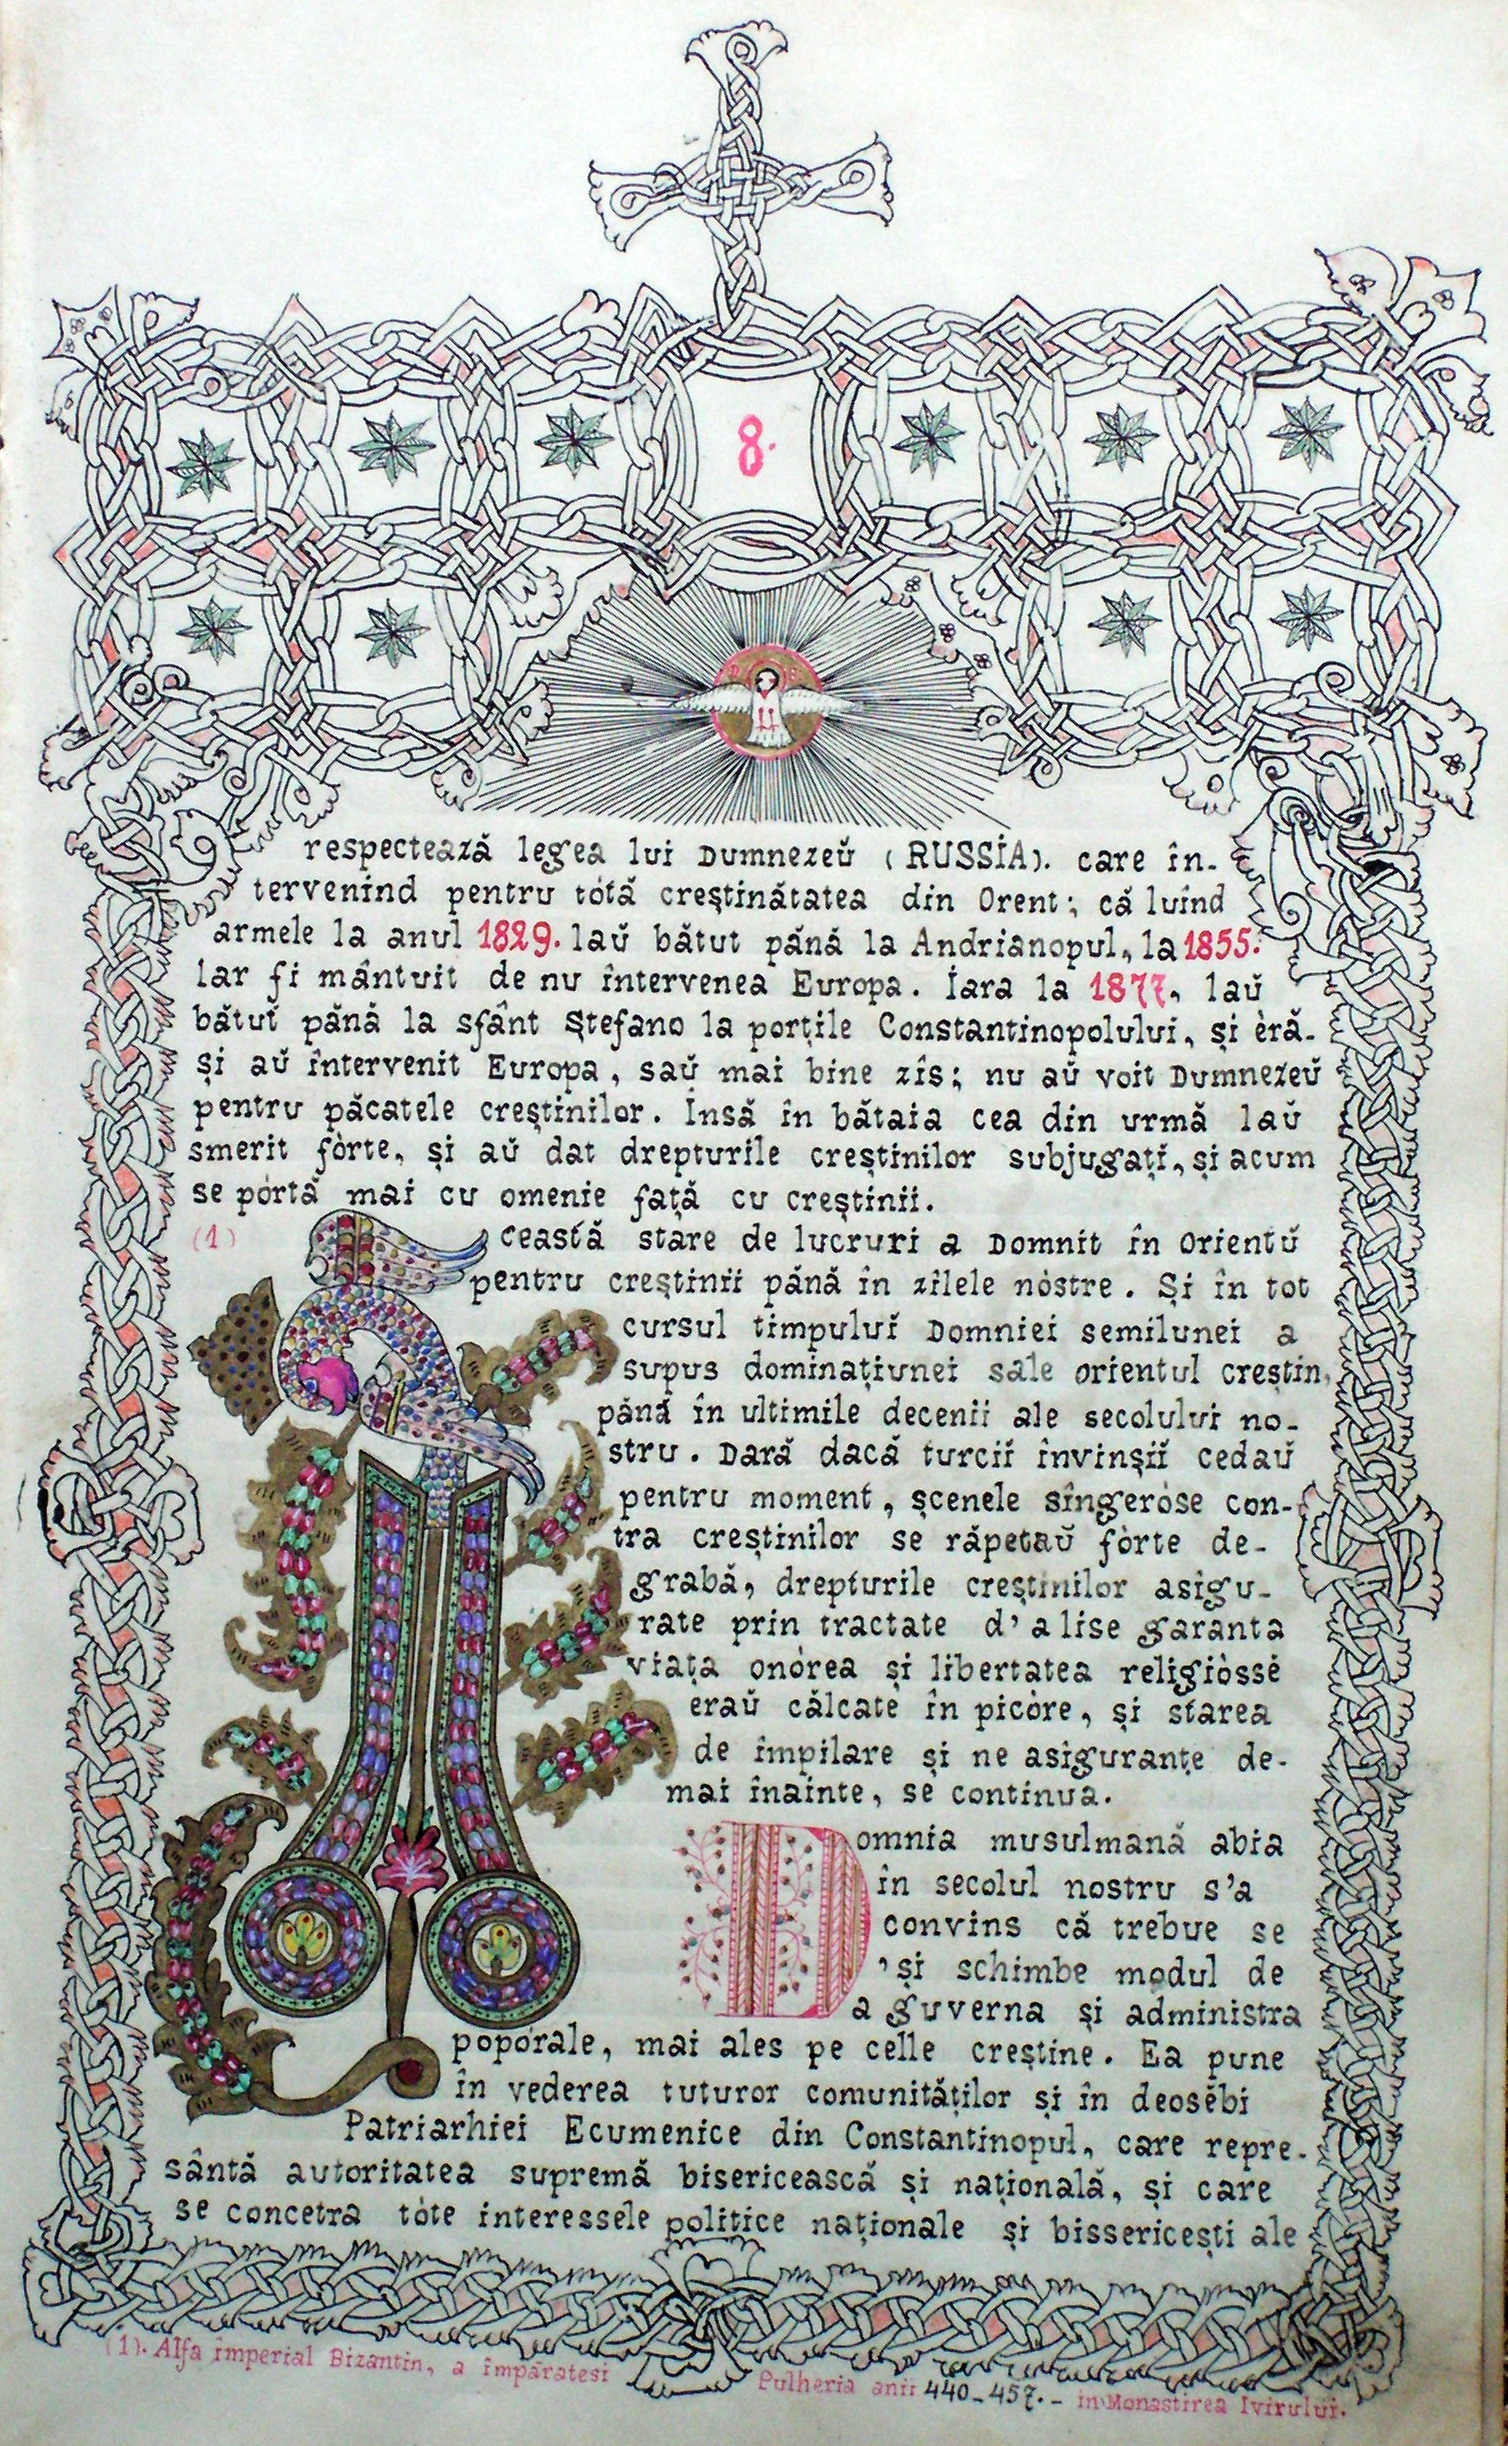 8.
respectează legea lui Dumnezeŭ (RUSSİA). care în-
tervenind pentru tótă creştinătatea din Orent; că luînd
armele la anul 1829. laŭ bătut până la Andrianopul, la 1855.
lar fi mântuit de nu întervenea Europa. İara la 1877, laŭ
bătut până la sfânt Ştefano la porţile Constantinopolului, şi èră-
şi aŭ întervenit Europa, saŭ mai bine zîs; nu aŭ voit Dumnezeŭ
pentru păcatele creştinilor. Însă în bătaia cea din urmă laŭ
smerit fòrte, şi aŭ dat drepturile creştinilor subjugaţĭ, şi acum
se pórtă mai cu omenie faţă cu creştinii.
(1)
ceastă stare de lucruri a Domnit în Orientŭ
pentru creştinii până în zîlele nòstre. Şi în tot
cursul timpuluĭ Domniei semilunei a
supus dominaţiunei sale orientul creştin,
până în ultimile decenii ale secolului no-
stru. Dară dacă turciĭ învinşiĭ cedaŭ
pentru moment, şcenele sîngeròse con-
tra creştinilor se răpetaŭ fòrte de-
grabă, drepturile creştinilor asîgu-
rate prin tractate d'a lise garanta
viaţa onórea şi libertatea religiòsse
eraŭ călcate în picòre, şi starea
de împilare şi ne asîguranţe de-
mai înainte, se continua.
Domnia musulmană abia
în secolul nostru s'a
convins că trebue se
'şi schimbe modul de
a guverna şi administra
popórale, mai ales pe celle creştine. Ea pune
în vederea tuturor comunităţilor şi în deosĕbi
Patriarhiei Ecumenice din Constantinopul, care repre-
sântă autoritatea supremă bisericească şi naţională, şi care
se concetra tòte interessele politice naţionale şi bissericeşti ale
(1). Alfa împerial Bizantin, a împăratesi Pulheria anii 440-457.- in Monastirea Ivirului.